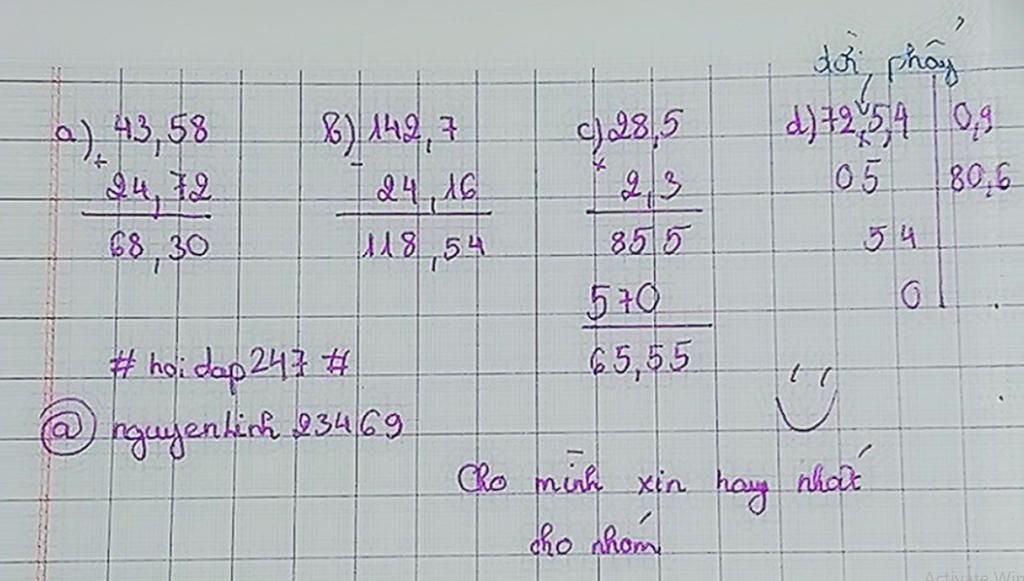 dời phẩy
a) 43,58
+
24,72
68,30
b) 142,7
-
24,16
118,54
c) 28,5
×
2,3
85 5
570
65,55
d) 72,5,4 0,9
05 80,6
54
0
# hoidap247 #
@ nguyenlinh 23469
Cho mình xin hay nhất
cho nhóm
Activate Win